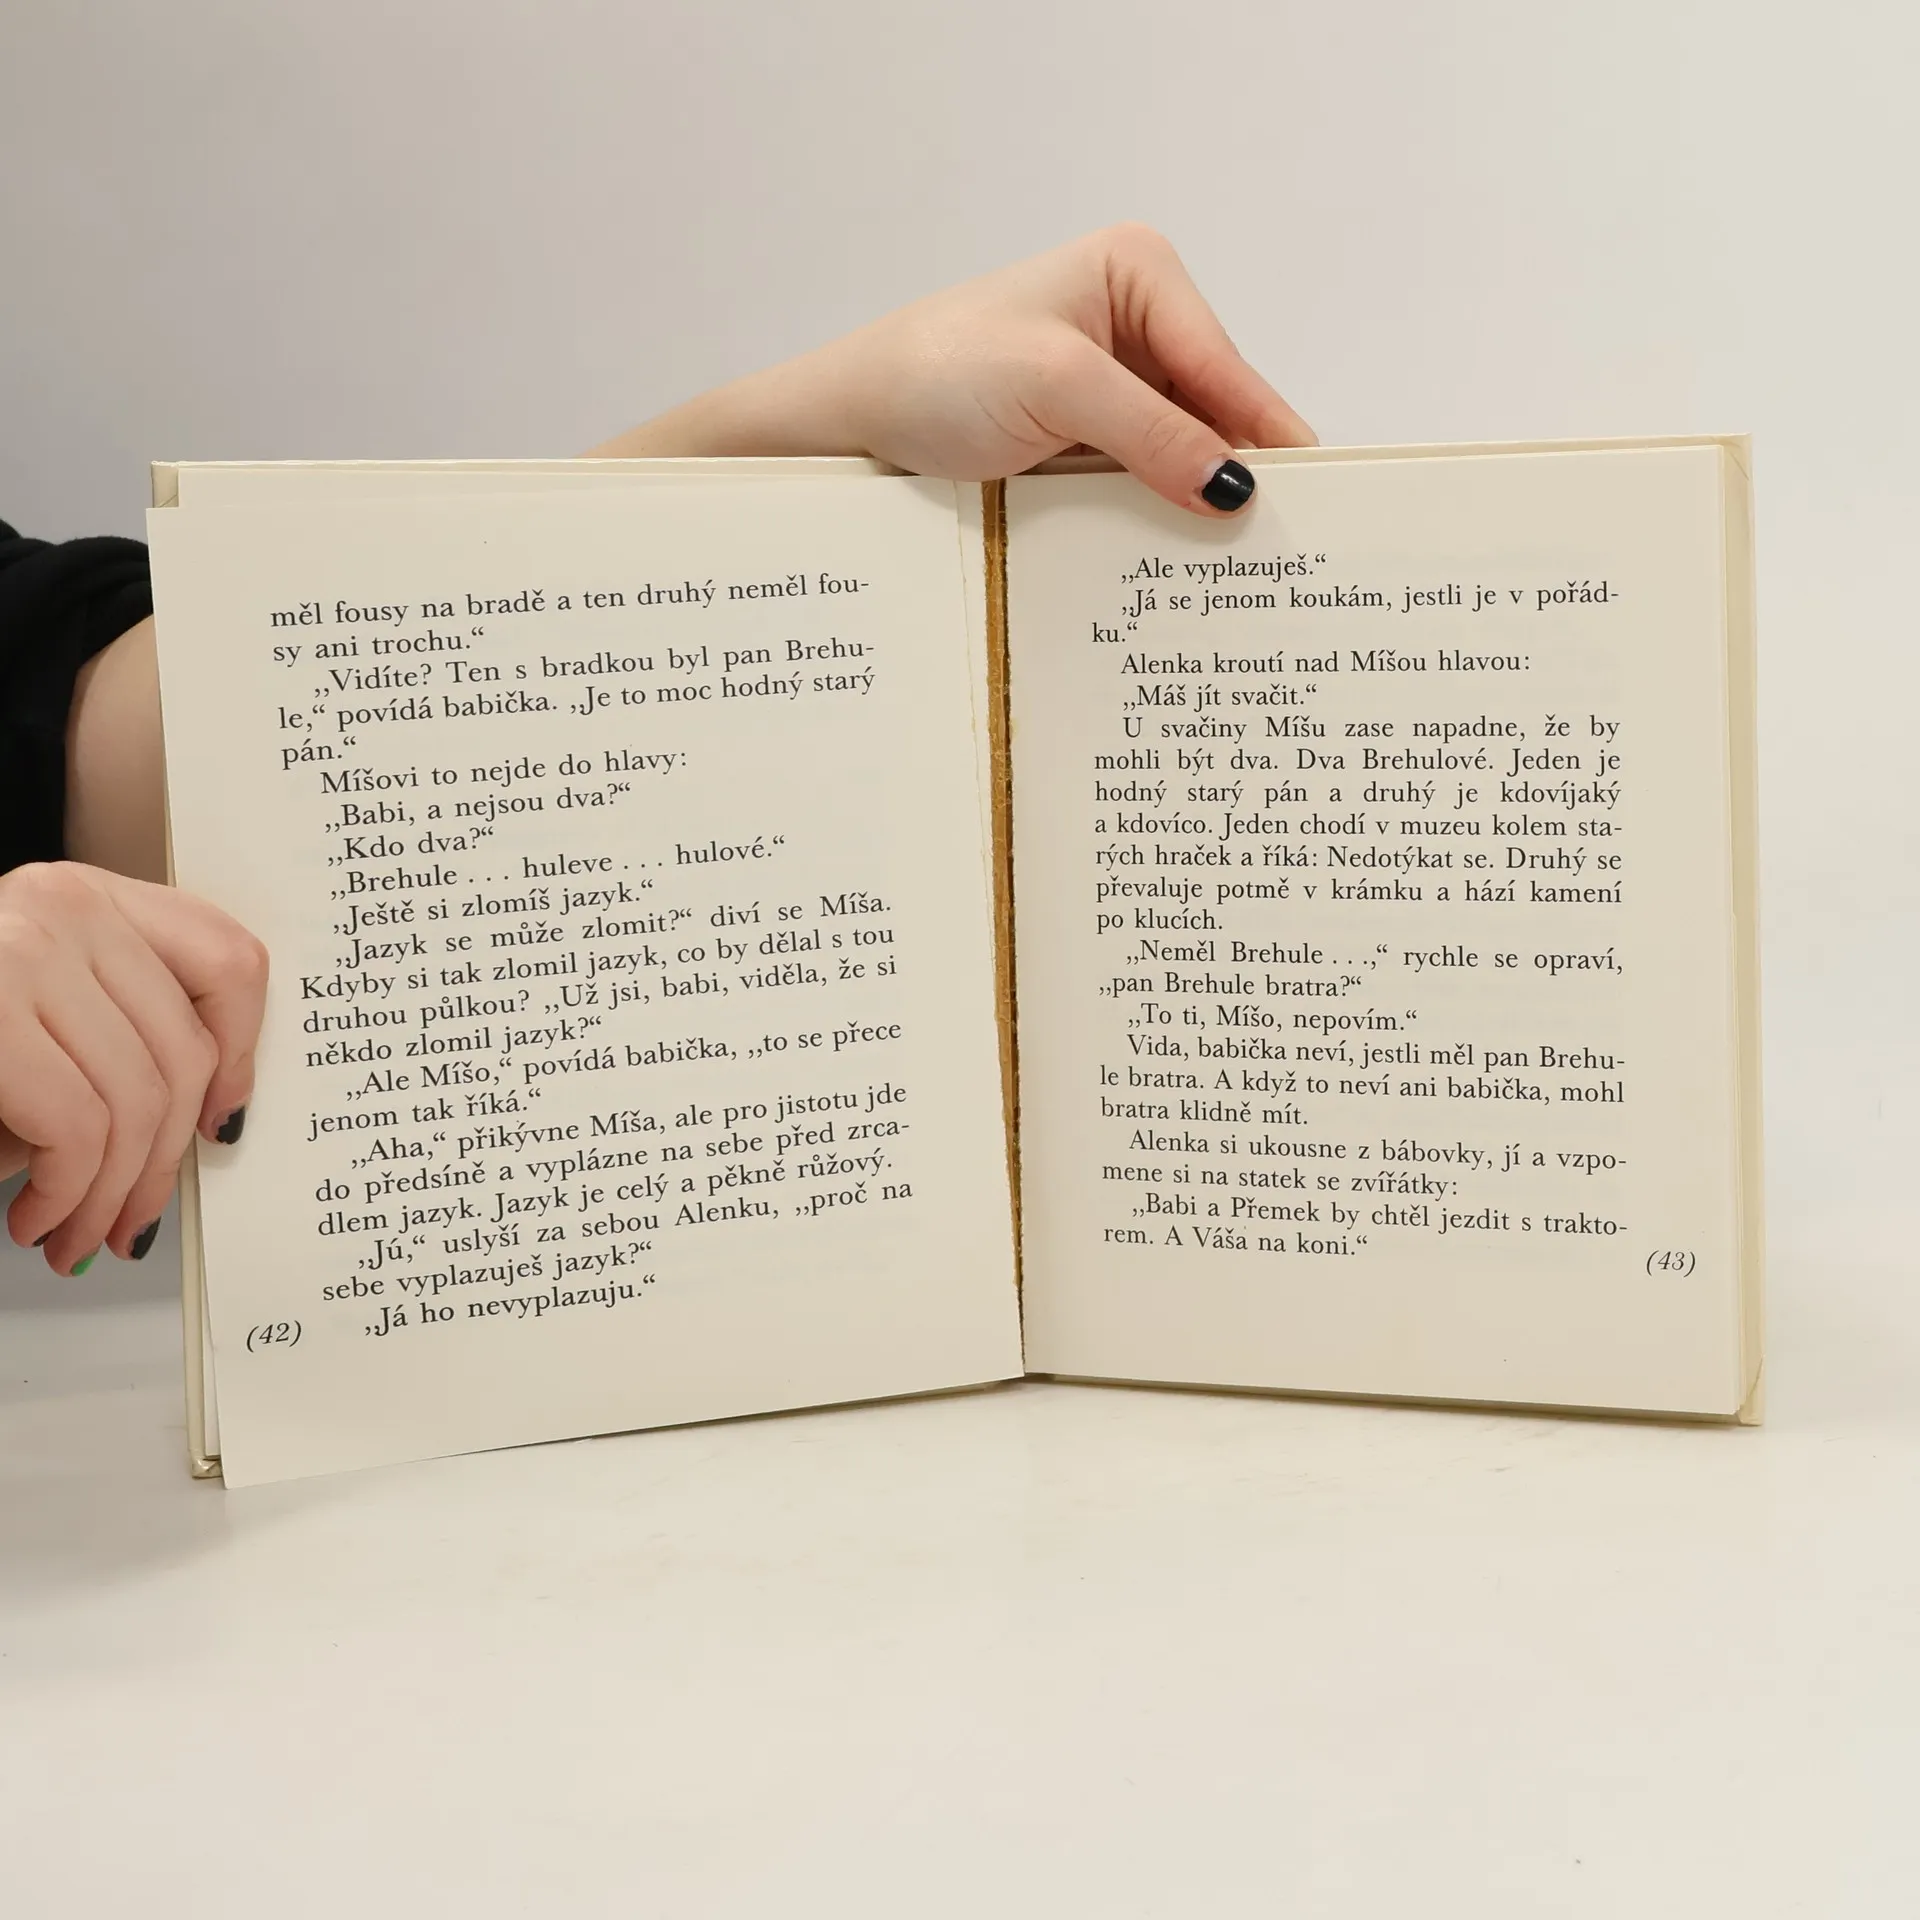 měl fousy na bradě a ten druhý neměl fou-
sy ani trochu.“
„Vidíte? Ten s bradkou byl pan Brehu-
le,“ povídá babička. „Je to moc hodný starý
pán.“
Míšovi to nejde do hlavy:
„Babi, a nejsou dva?“
„Kdo dva?“
„Brehule . . . huleve . . . hulové.“
„Ještě si zlomíš jazyk.“
„Jazyk se může zlomit?“ diví se Míša.
Kdyby si tak zlomil jazyk, co by dělal s tou
druhou půlkou? „Už jsi, babi, viděla, že si
někdo zlomil jazyk?“
„Ale Míšo,“ povídá babička, „to se přece
jenom tak říká.“
„Aha,“ přikývne Míša, ale pro jistotu jde
do předsíně a vyplázne na sebe před zrca-
dlem jazyk. Jazyk je celý a pěkně růžový.
„Jú,“ uslyší za sebou Alenku, „proč na
sebe vyplazuješ jazyk?“
„Já ho nevyplazuju.“
(42)
„Ale vyplazuješ.“
„Já se jenom koukám, jestli je v pořád-
ku.“
Alenka kroutí nad Míšou hlavou:
„Máš jít svačit.“
U svačiny Míšu zase napadne, že by
mohli být dva. Dva Brehulové. Jeden je
hodný starý pán a druhý je kdovíjaký
a kdovíco. Jeden chodí v muzeu kolem sta-
rých hraček a říká: Nedotýkat se. Druhý se
převaluje potmě v krámku a hází kamení
po klucích.
„Neměl Brehule . . .,“ rychle se opraví,
„pan Brehule bratra?“
„To ti, Míšo, nepovím.“
Vida, babička neví, jestli měl pan Brehu-
le bratra. A když to neví ani babička, mohl
bratra klidně mít.
Alenka si ukousne z bábovky, jí a vzpo-
mene si na statek se zvířátky:
„Babi a Přemek by chtěl jezdit s trakto-
rem. A Váša na koni.“
(43)